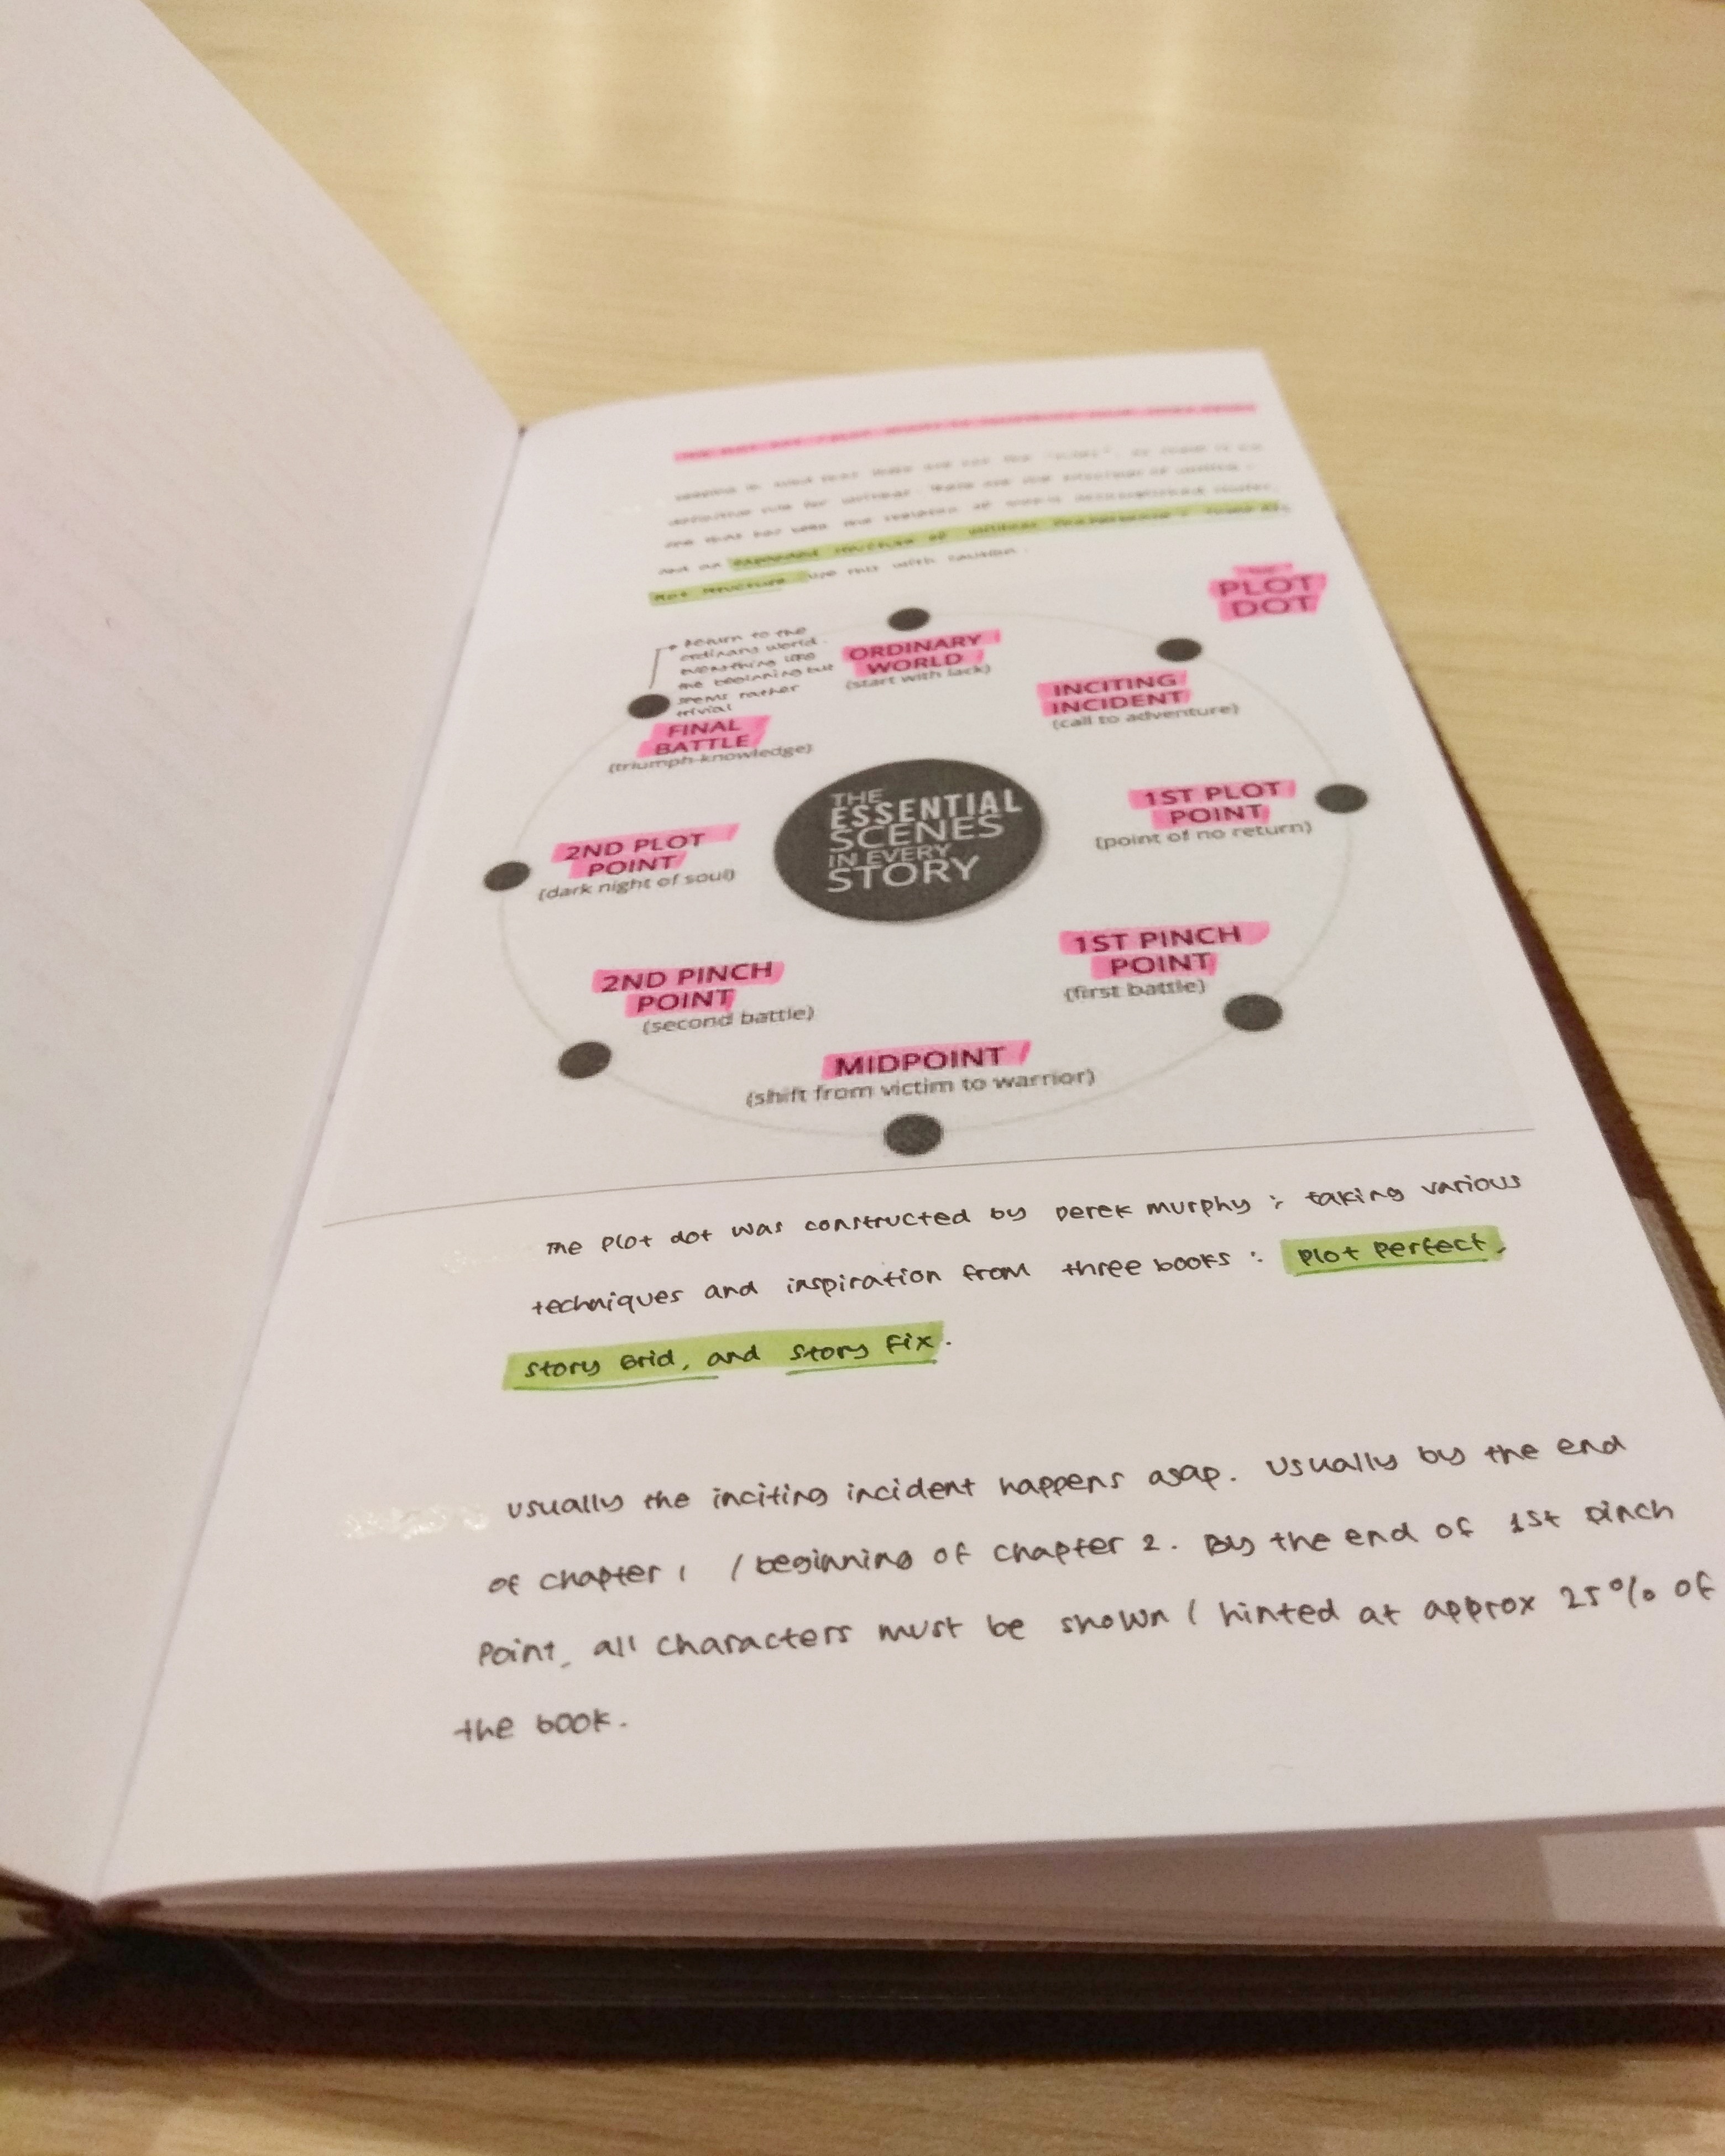 definitive rule for writing. These are the
and an expanded structure of
Plot structure. Use this with caution.
THE
PLOT
DOT
return to the
ordinary world.
everything like
the beginning but
seems rather
trivial
ORDINARY
WORLD
(start with lack)
INCITING
INCIDENT
(call to adventure)
1ST PLOT
POINT
(point of no return)
1ST PINCH
POINT
(first battle)
MIDPOINT
(shift from victim to warrior)
2ND PINCH
POINT
(second battle)
2ND PLOT
POINT
(dark night of soul)
FINAL
BATTLE
(triumph-knowledge)
THE
ESSENTIAL
SCENES
IN EVERY
STORY
The plot dot was constructed by Derek Murphy ; taking various
techniques and inspiration from three books : Plot Perfect,
Story Grid, and Story Fix.
Usually the inciting incident happens asap. Usually by the end
of chapter 1 / beginning of chapter 2. By the end of 1st pinch
point, all characters must be shown / hinted at approx 25% of
the book.